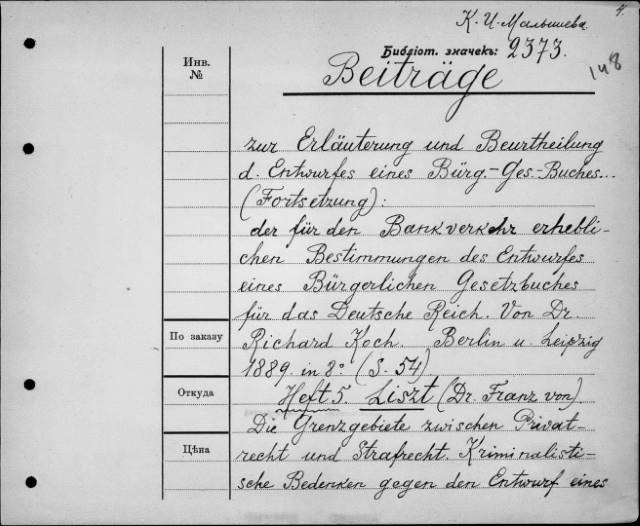 4.
К. И. Малышева.
Библіот. значекъ: 2373.
148
Инв.
№
Beiträge
zur Erläuterung und Beurtheilung
d. Entwurfes eines Bürg.-Ges.-Buches...
(Fortsetzung):
der für den Bankverkehr erhebli-
chen Bestimmungen des Entwurfes
eines Bürgerlichen Gesetzbuches
für das Deutsche Reich. Von Dr.
По заказу
Richard Koch. Berlin u. Leipzig
1889. in 8° (S. 54)
Откуда
Heft 5. Liszt (Dr. Franz von).
Die Grenzgebiete zwischen Privat-
Цѣна
recht und Strafrecht. Kriminalisti-
sche Bedenken gegen den Entwurf eines